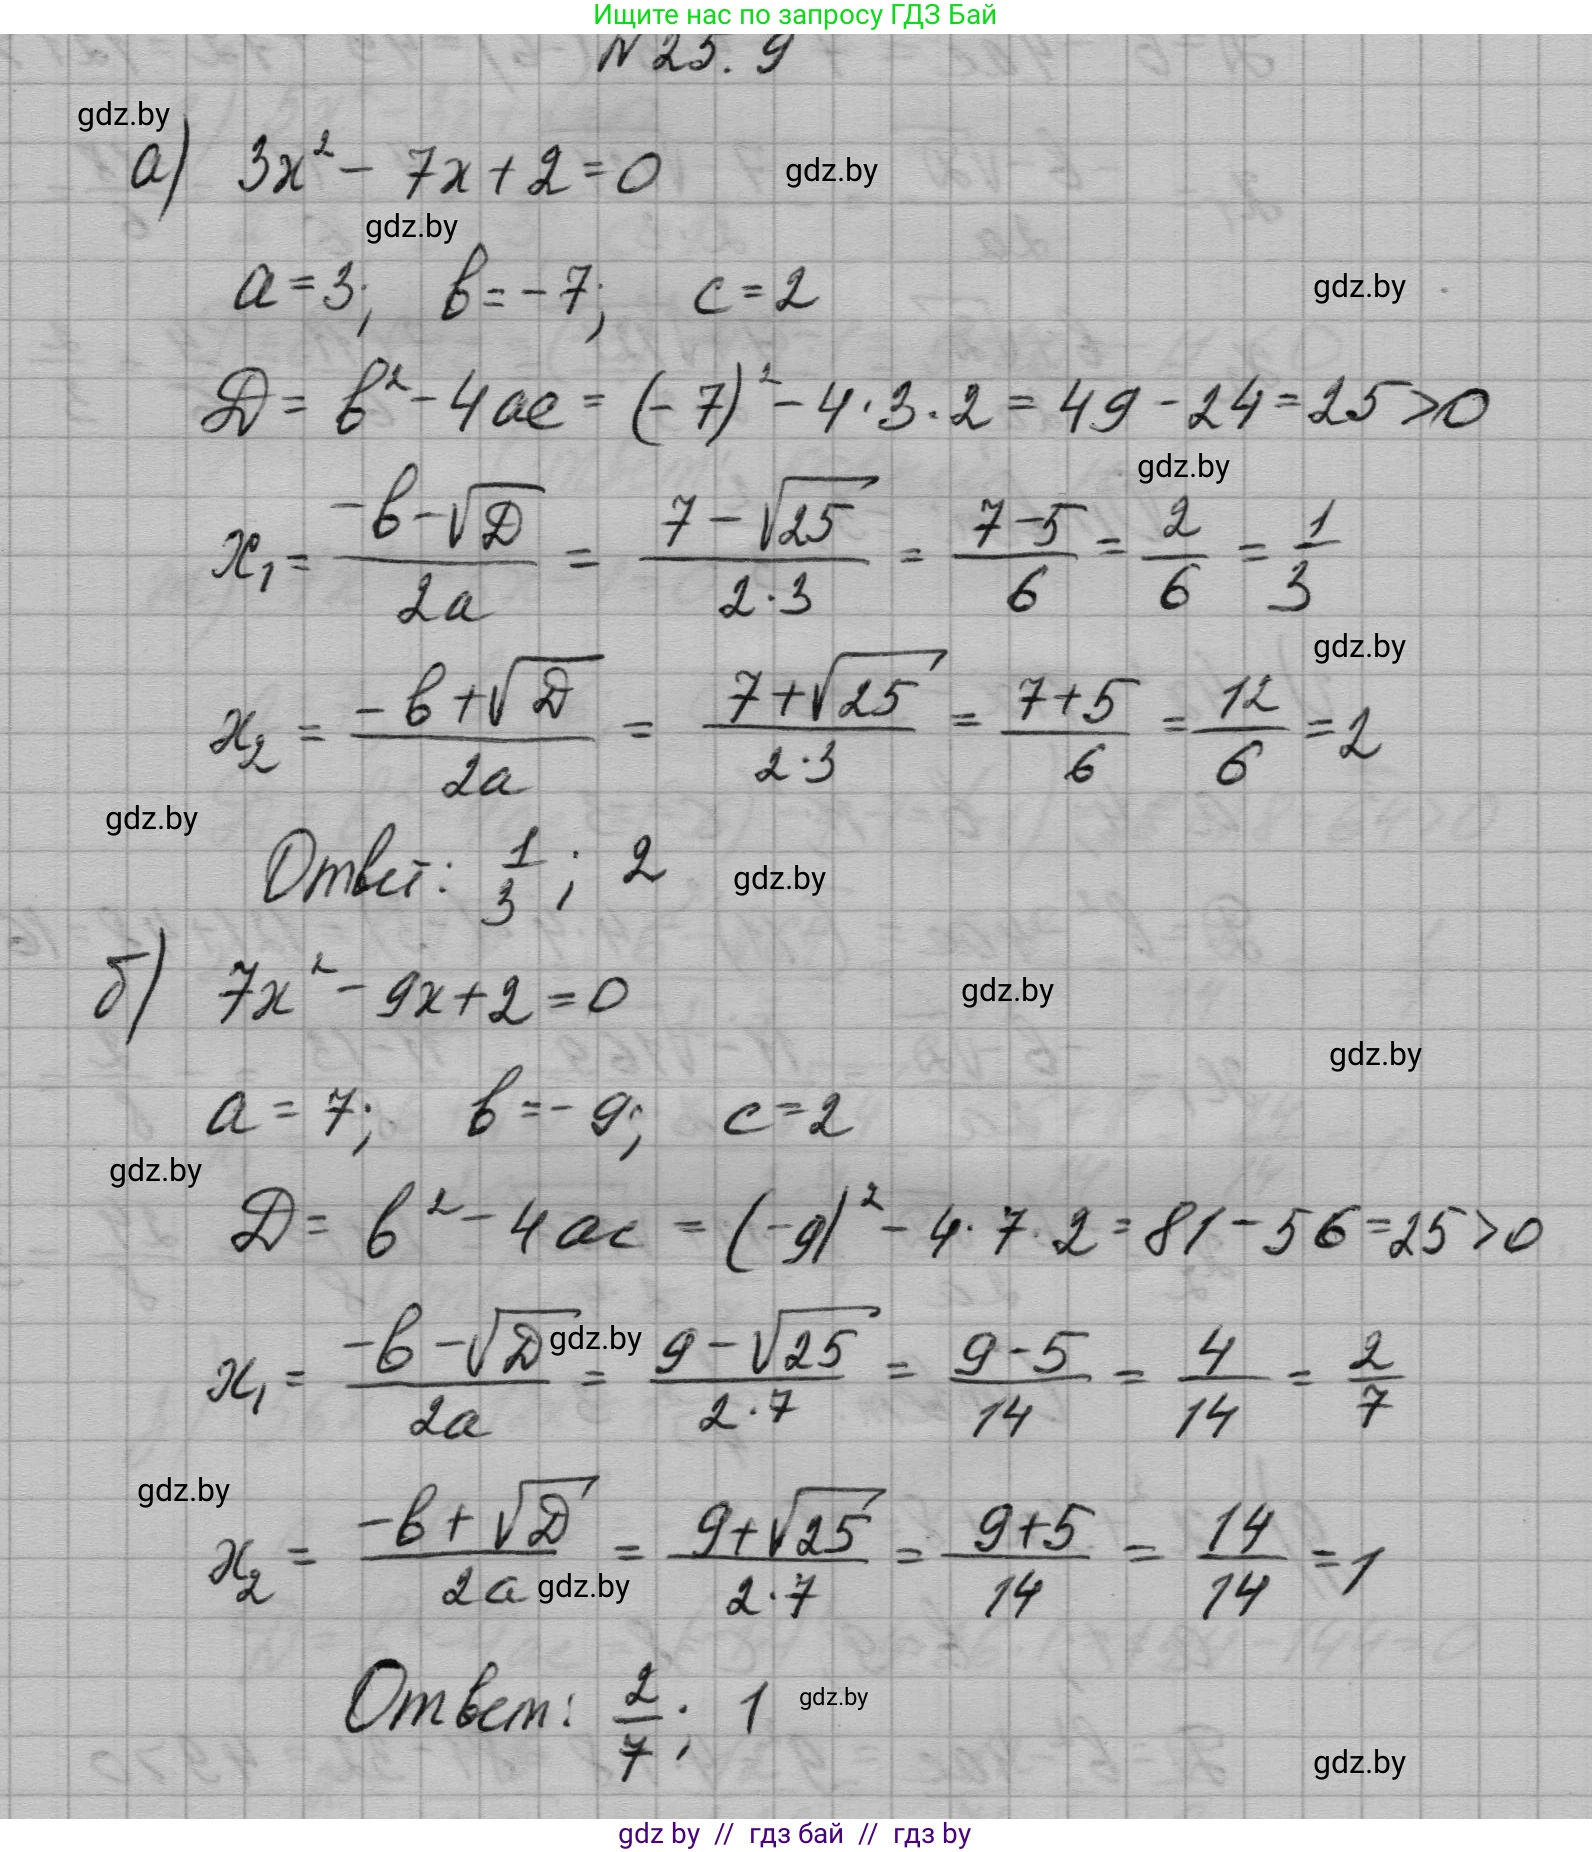 Ищите нас по запросу ГДЗ Бай
N 25. 9
gdz.by
а) 3x² - 7x + 2 = 0
gdz.by
gdz.by
a = 3; b = -7; c = 2
gdz.by
D = b² - 4ac = (-7)² - 4·3·2 = 49 - 24 = 25 > 0
gdz.by
x₁ = (-b - √D)/(2a) = (7 - √25)/(2·3) = (7 - 5)/6 = 2/6 = 1/3
gdz.by
x₂ = (-b + √D)/(2a) = (7 + √25)/(2·3) = (7 + 5)/6 = 12/6 = 2
gdz.by
Ответ: 1/3; 2
gdz.by
б) 7x² - 9x + 2 = 0
gdz.by
gdz.by
a = 7; b = -9; c = 2
gdz.by
D = b² - 4ac = (-9)² - 4·7·2 = 81 - 56 = 25 > 0
x₁ = (-b - √D)/(2a) = (9 - √25)/(2·7) = (9 - 5)/14 = 4/14 = 2/7
gdz.by
gdz.by
x₂ = (-b + √D)/(2a) = (9 + √25)/(2·7) = (9 + 5)/14 = 14/14 = 1
gdz.by
Ответ: 2/7; 1
gdz.by
gdz.by
gdz by // гдз бай // гдз by